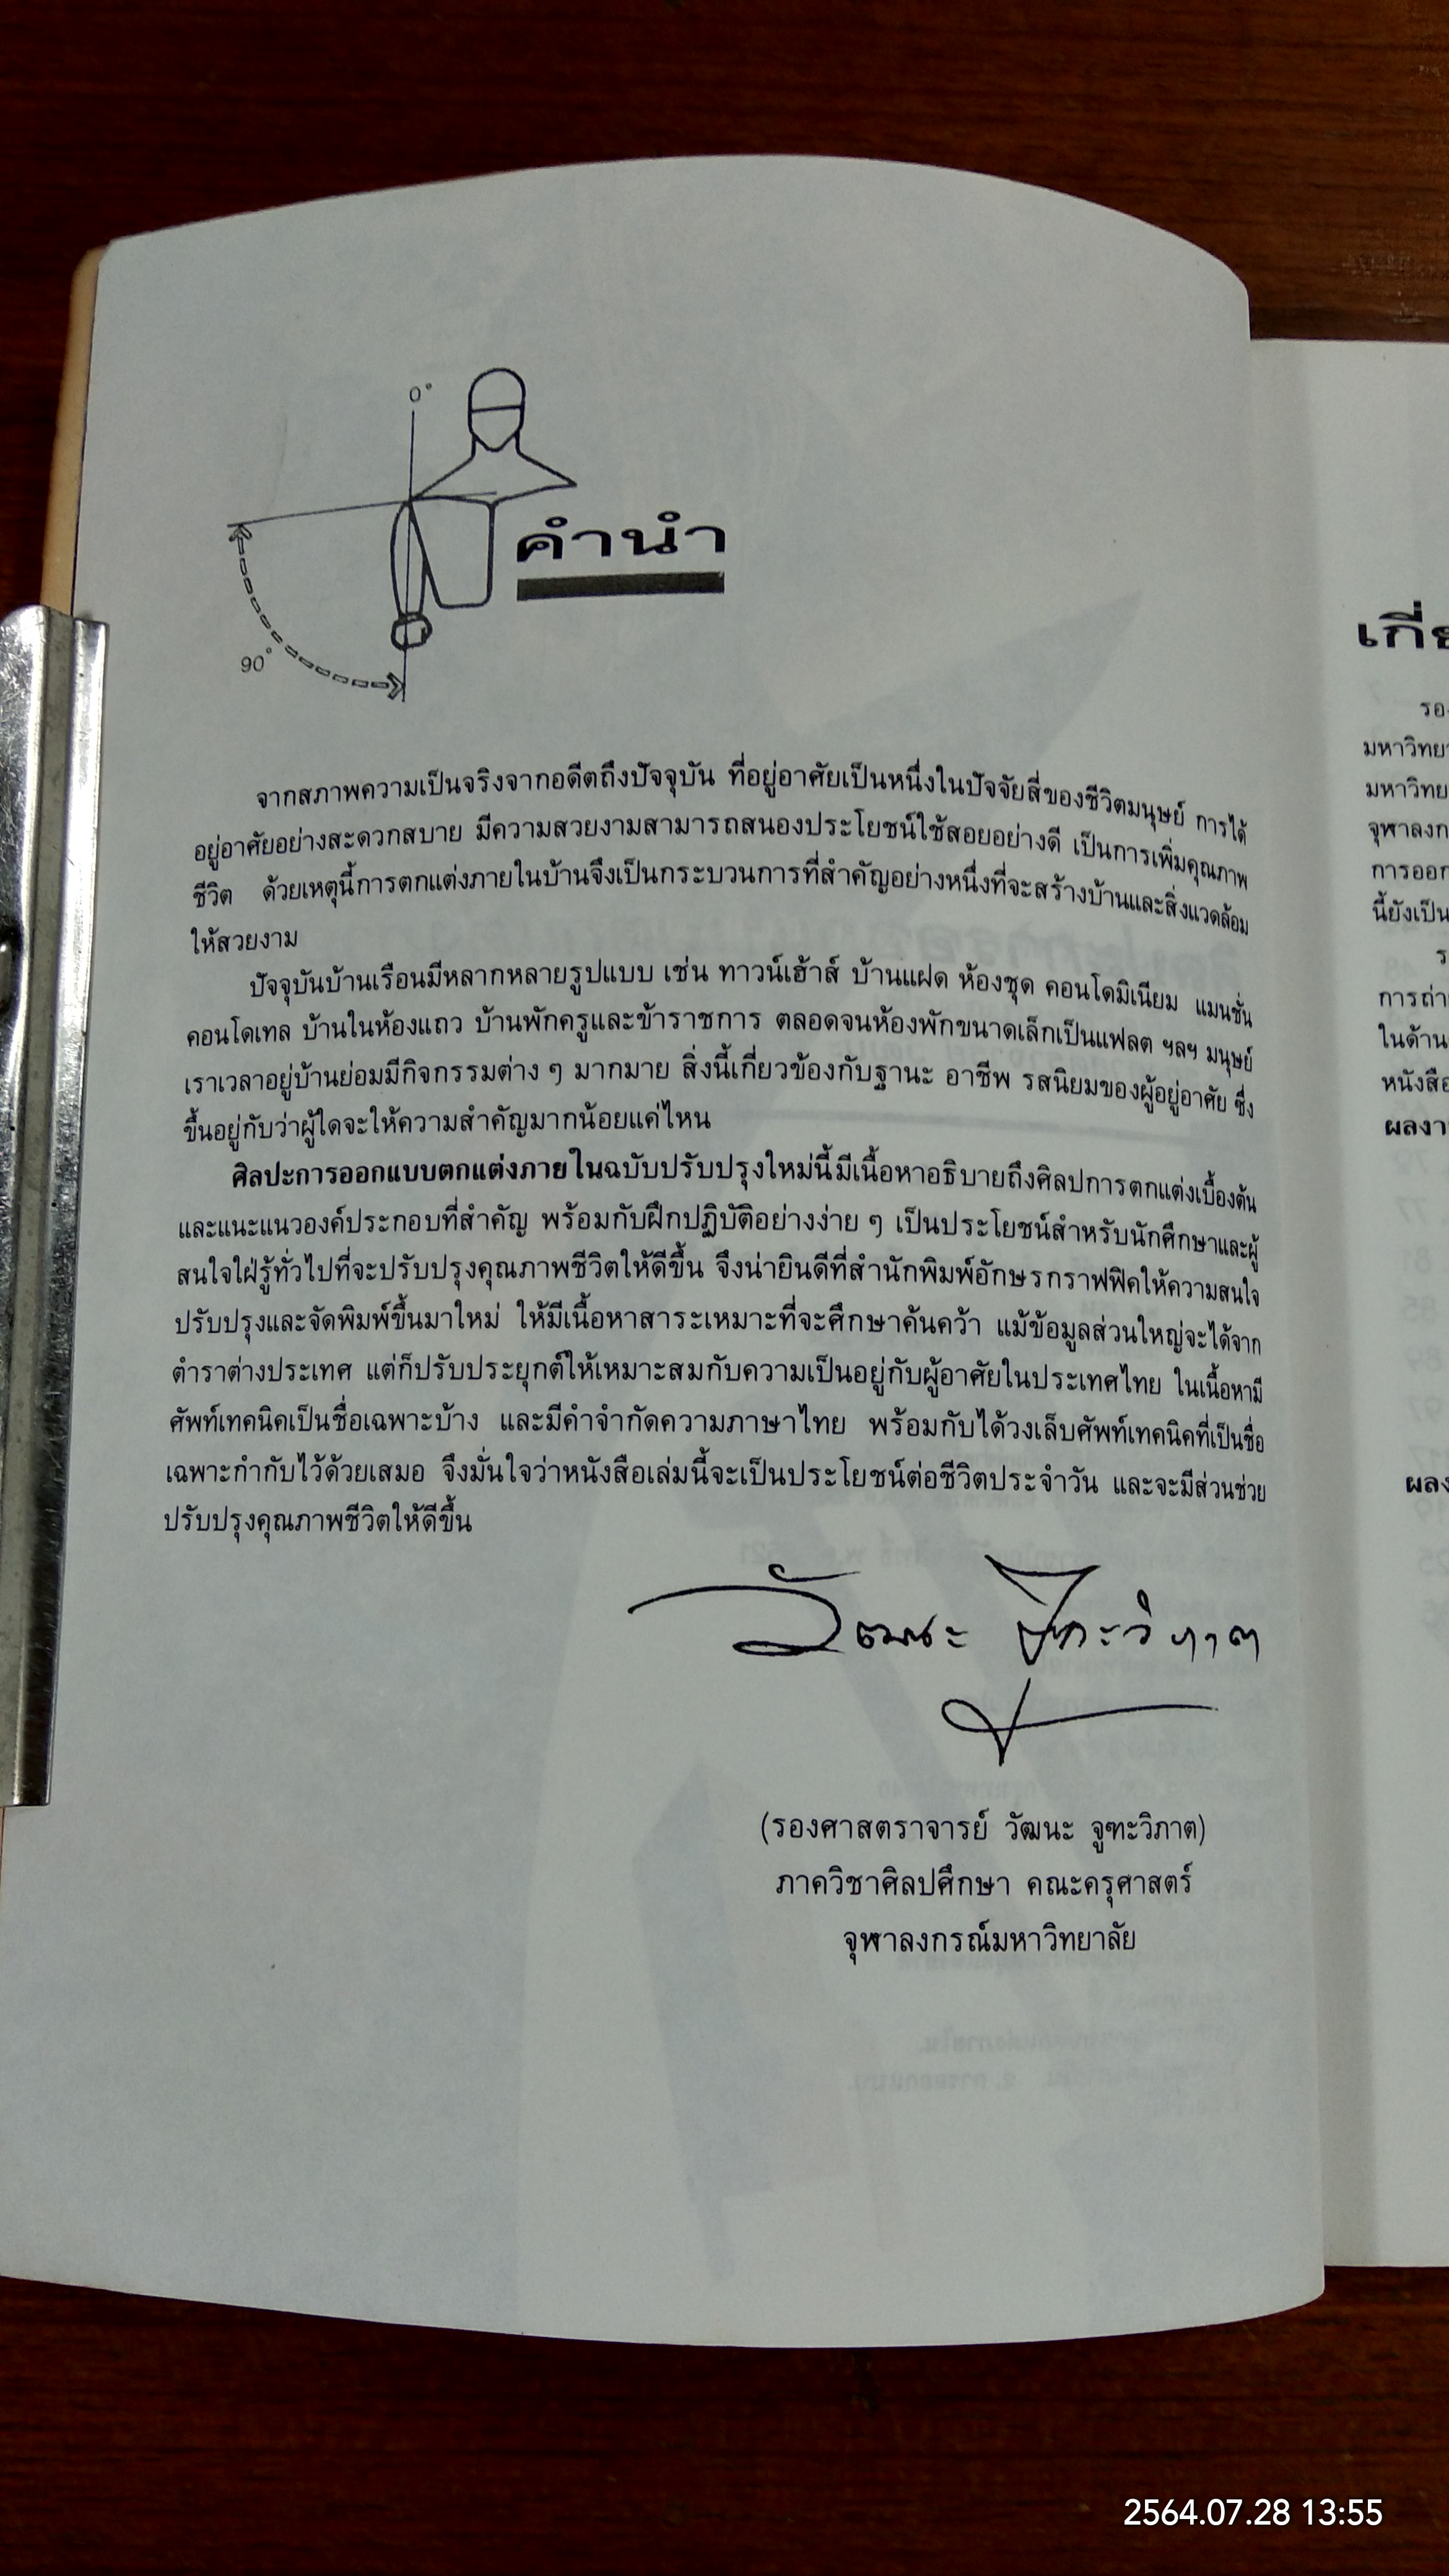 0°
คำนำ
90°
จากสภาพความเป็นจริงจากอดีตถึงปัจจุบัน ที่อยู่อาศัยเป็นหนึ่งในปัจจัยสี่ของชีวิตมนุษย์ การได้
อยู่อาศัยอย่างสะดวกสบาย มีความสวยงามสามารถสนองประโยชน์ใช้สอยอย่างดี เป็นการเพิ่มคุณภาพ
ชีวิต ด้วยเหตุนี้การตกแต่งภายในบ้านจึงเป็นกระบวนการที่สำคัญอย่างหนึ่งที่จะสร้างบ้านและสิ่งแวดล้อม
ให้สวยงาม
ปัจจุบันบ้านเรือนมีหลากหลายรูปแบบ เช่น ทาวน์เฮ้าส์ บ้านแฝด ห้องชุด คอนโดมิเนียม แมนชั่น
คอนโดเทล บ้านในห้องแถว บ้านพักครูและข้าราชการ ตลอดจนห้องพักขนาดเล็กเป็นแฟลต ฯลฯ มนุษย์
เราเวลาอยู่บ้านย่อมมีกิจกรรมต่าง ๆ มากมาย สิ่งนี้เกี่ยวข้องกับฐานะ อาชีพ รสนิยมของผู้อยู่อาศัย ซึ่ง
ขึ้นอยู่กับว่าผู้ใดจะให้ความสำคัญมากน้อยแค่ไหน
ศิลปะการออกแบบตกแต่งภายในฉบับปรับปรุงใหม่นี้มีเนื้อหาอธิบายถึงศิลปการตกแต่งเบื้องต้น
และแนะแนวองค์ประกอบที่สำคัญ พร้อมกับฝึกปฏิบัติอย่างง่าย ๆ เป็นประโยชน์สำหรับนักศึกษาและผู้
สนใจใฝ่รู้ทั่วไปที่จะปรับปรุงคุณภาพชีวิตให้ดีขึ้น จึงน่ายินดีที่สำนักพิมพ์อักษรกราฟฟิคให้ความสนใจ
ปรับปรุงและจัดพิมพ์ขึ้นมาใหม่ ให้มีเนื้อหาสาระเหมาะที่จะศึกษาค้นคว้า แม้ข้อมูลส่วนใหญ่จะได้จาก
ตำราต่างประเทศ แต่ก็ปรับประยุกต์ให้เหมาะสมกับความเป็นอยู่กับผู้อาศัยในประเทศไทย ในเนื้อหามี
ศัพท์เทคนิคเป็นชื่อเฉพาะบ้าง และมีคำจำกัดความภาษาไทย พร้อมกับได้วงเล็บศัพท์เทคนิคที่เป็นชื่อ
เฉพาะกำกับไว้ด้วยเสมอ จึงมั่นใจว่าหนังสือเล่มนี้จะเป็นประโยชน์ต่อชีวิตประจำวัน และจะมีส่วนช่วย
ปรับปรุงคุณภาพชีวิตให้ดีขึ้น
วัฒนะ จูฑะวิภาต
(รองศาสตราจารย์ วัฒนะ จูฑะวิภาต)
ภาควิชาศิลปศึกษา คณะครุศาสตร์
จุฬาลงกรณ์มหาวิทยาลัย
การออก
นี้ยังเป็น
ในด้าน
หนังสือ
2564.07.28 13:55